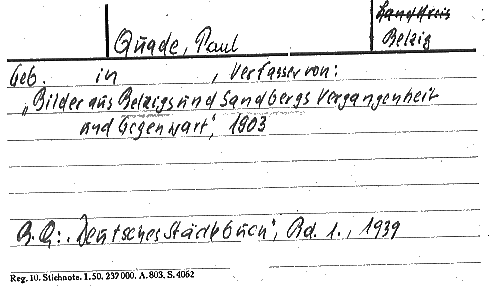 Landkreis
Quade, Paul
Belzig
Geb. in , Verfasser von:
„Bilder aus Belzigs und Sandbergs Vergangenheit
und Gegenwart", 1903
B.Q.: „Deutsches Städtebuch", Bd. 1., 1939
Reg. 10. Stichnote. 1. 50. 237000. A. 803. S. 4062